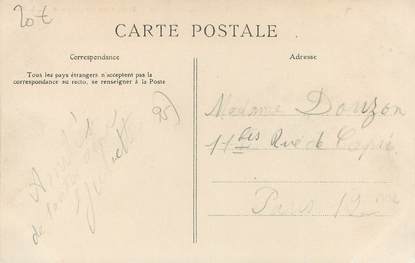 20t
CARTE POSTALE
Correspondance
Adresse
Tous les pays étrangers n'acceptent pas la
correspondance au recto, se renseigner à la Poste
95)
de
Madame Douzon
11 bis Rue de Capri
Paris 12me